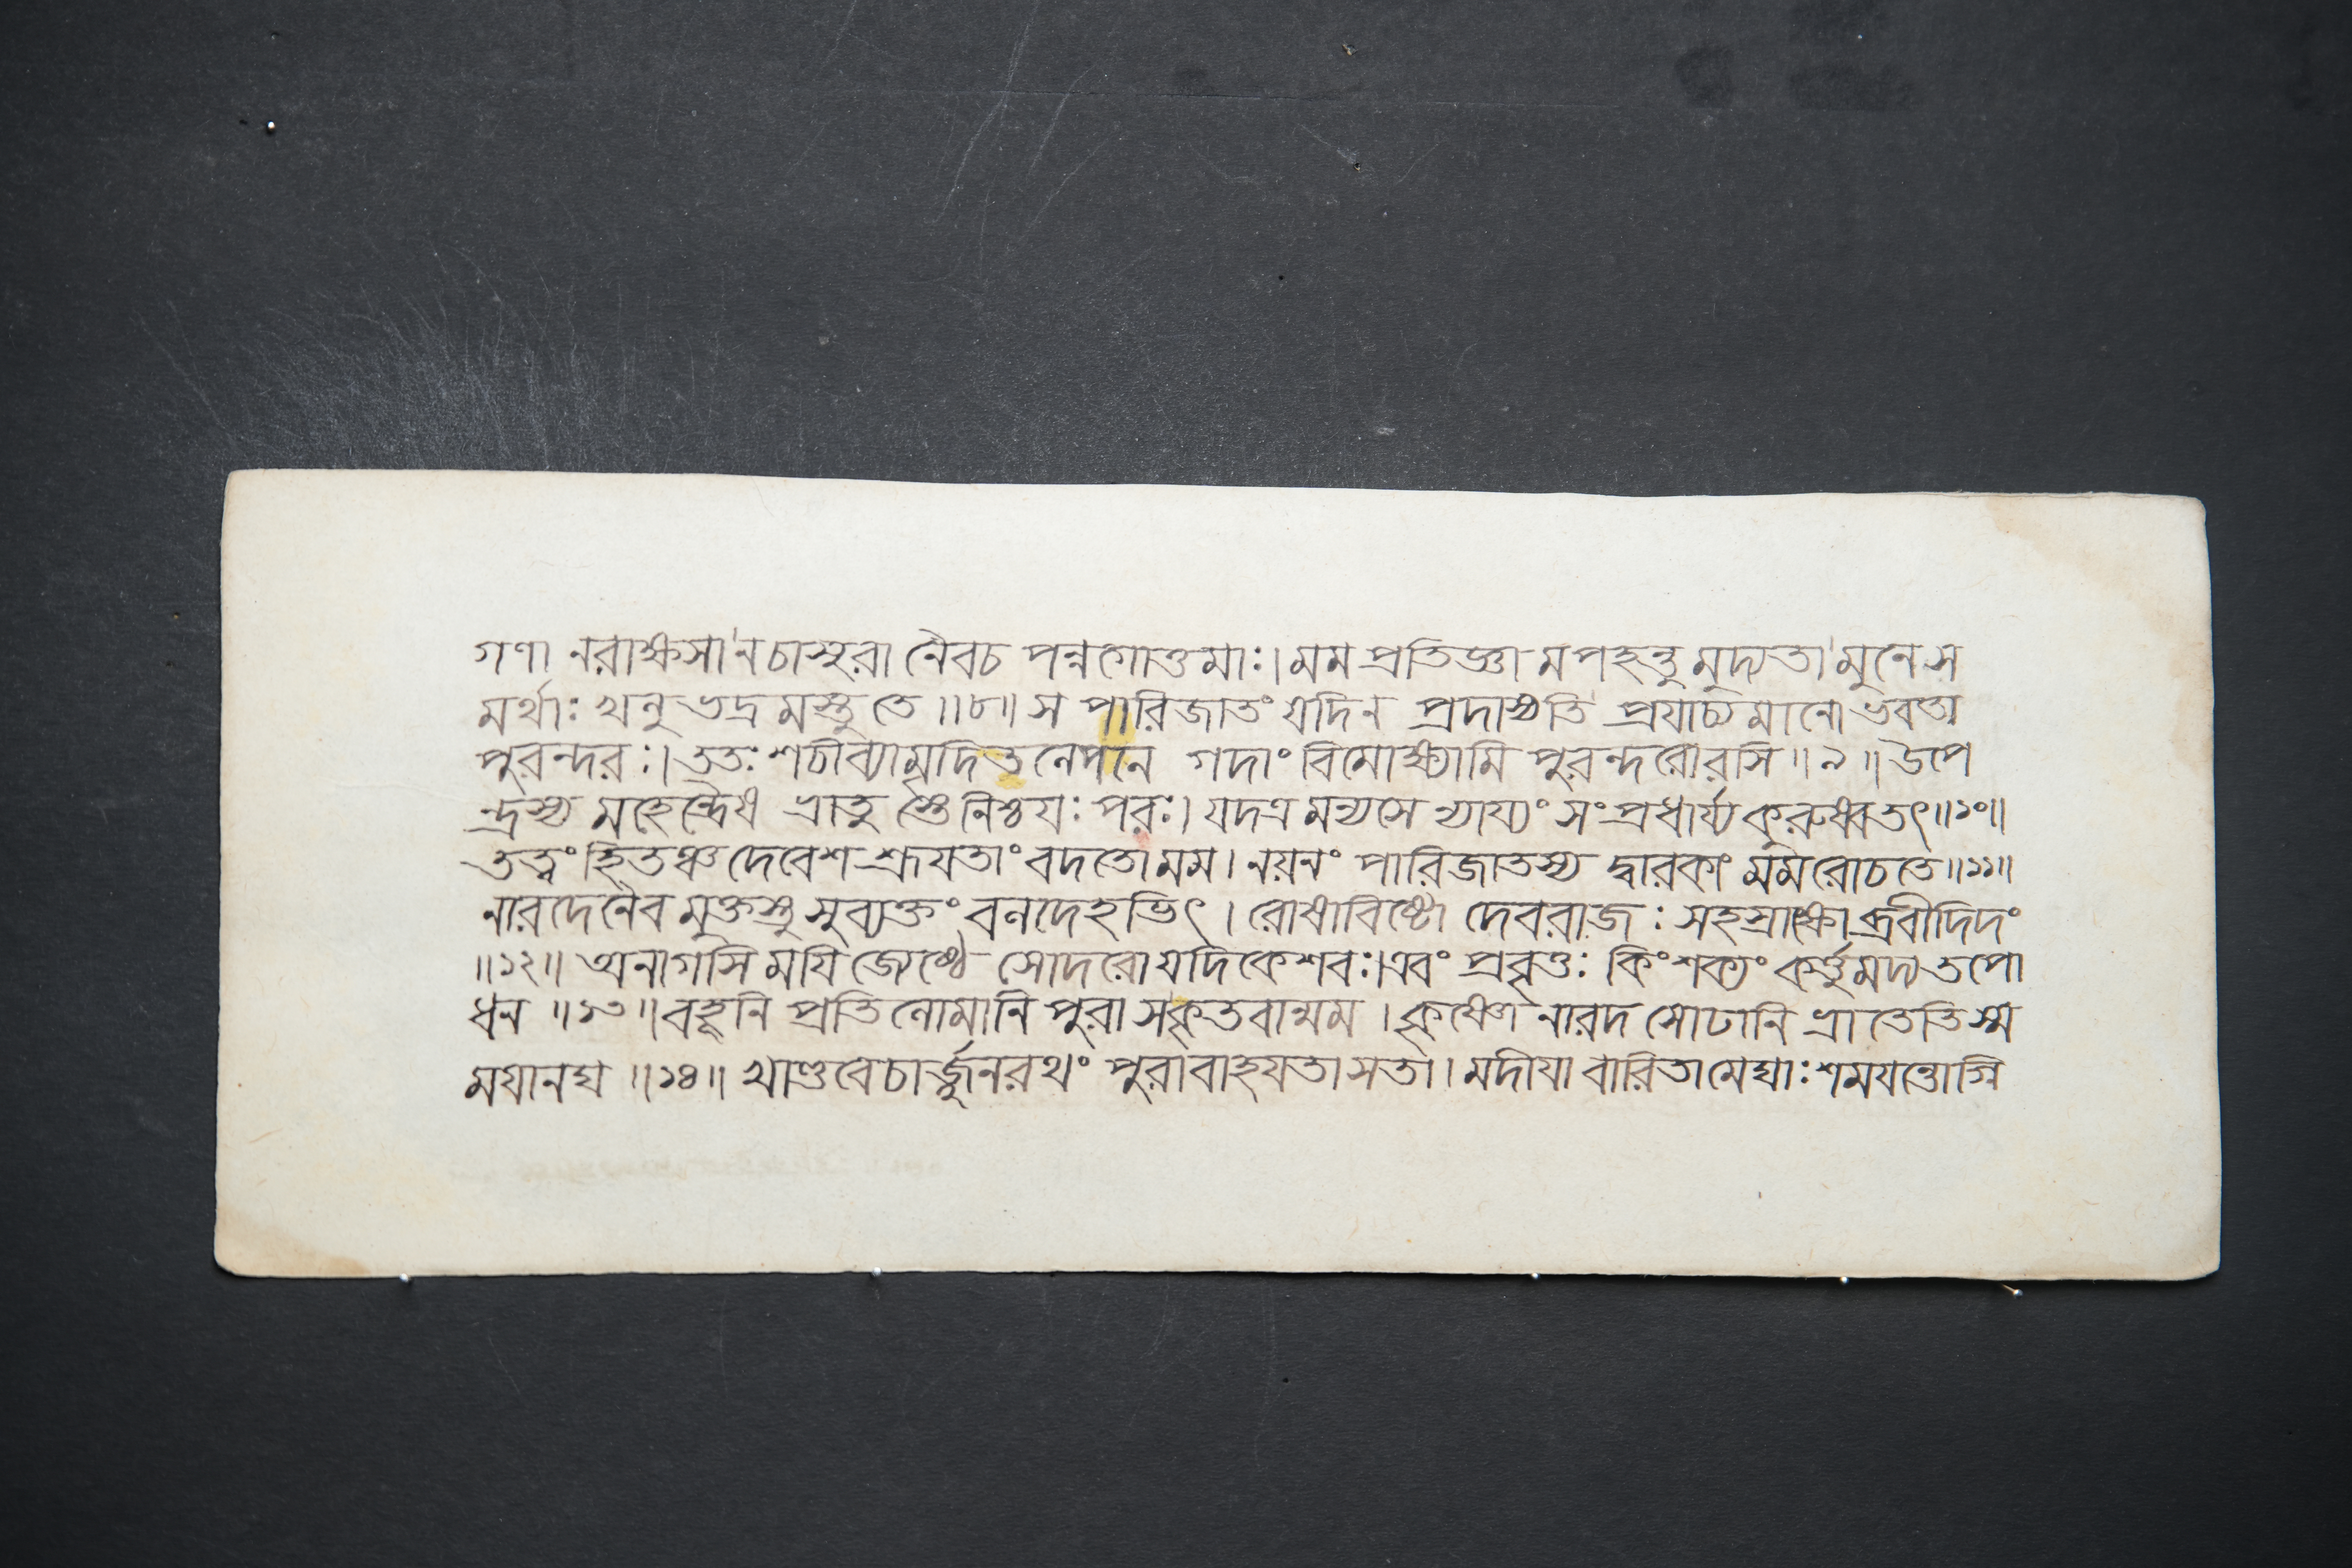 গণা নরাক্ষসা নচাসুরা নৈবচ পন্নগোত্তমাঃ। মম প্রতিজ্ঞা মপহন্তু মুদ্যতা মুনে স
মর্থাঃ খলু ভদ্র মস্তু তে ॥৮॥ স পারিজাতং যদি ন প্রদাস্যতি প্রযাচ্যমানো ভবতা
পুরন্দরঃ। ততঃ শচীব্যামৃদিতনেপনে গদাং বিমোক্ষ্যামি পুরন্দরোরসি ॥৯॥ উপে
ন্দ্রস্য মহেন্দ্রৈধ ভ্রাতু স্তে নিশ্চযঃ পরঃ। যদত্র মন্যসে ন্যায্যং সংপ্রধার্য্য কুরুধ্ব তৎ॥১০॥
তত্ত্বং হিতঞ্চ দেবেশ শ্রূযতাং বদতো মম। নয়নং পারিজাতস্য দ্বারকাং মম রোচতে॥১১॥
নারদেনৈব মুক্তস্তু সুব্যক্তং বলদেহভিৎ। রোষাবিষ্টো দেবরাজঃ সহস্রাক্ষো ব্রবীদিদং
॥১২॥ অনাগসি মযি জেষ্ঠে সোদরো যদি কেশবঃ। এবং প্রবৃত্তঃ কিং শক্যং কর্ত্তু মদ্য তপো
ধন ॥১৩॥ বহূনি প্রতিলোমানি পুরা সকৃতবান্মম। কৃষ্ণো নারদ সোঢানি ভ্রাতেতি স্ম
মযানঘ ॥১৪॥ খাণ্ডবেচার্জ্জুনরথং পুরা বাহযতা সতা। মদীযা বারিতা মেঘাঃ শমযন্তোগ্নি